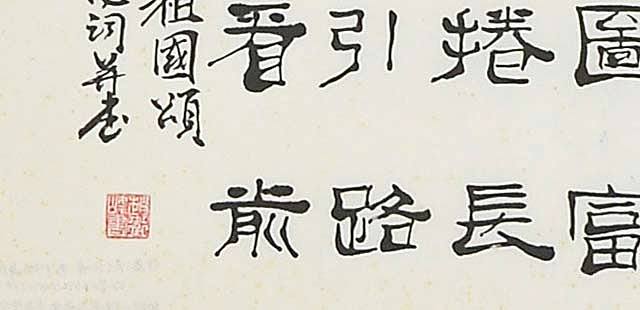 圖富
捲長
引路
看前
祖國頌
詞并書